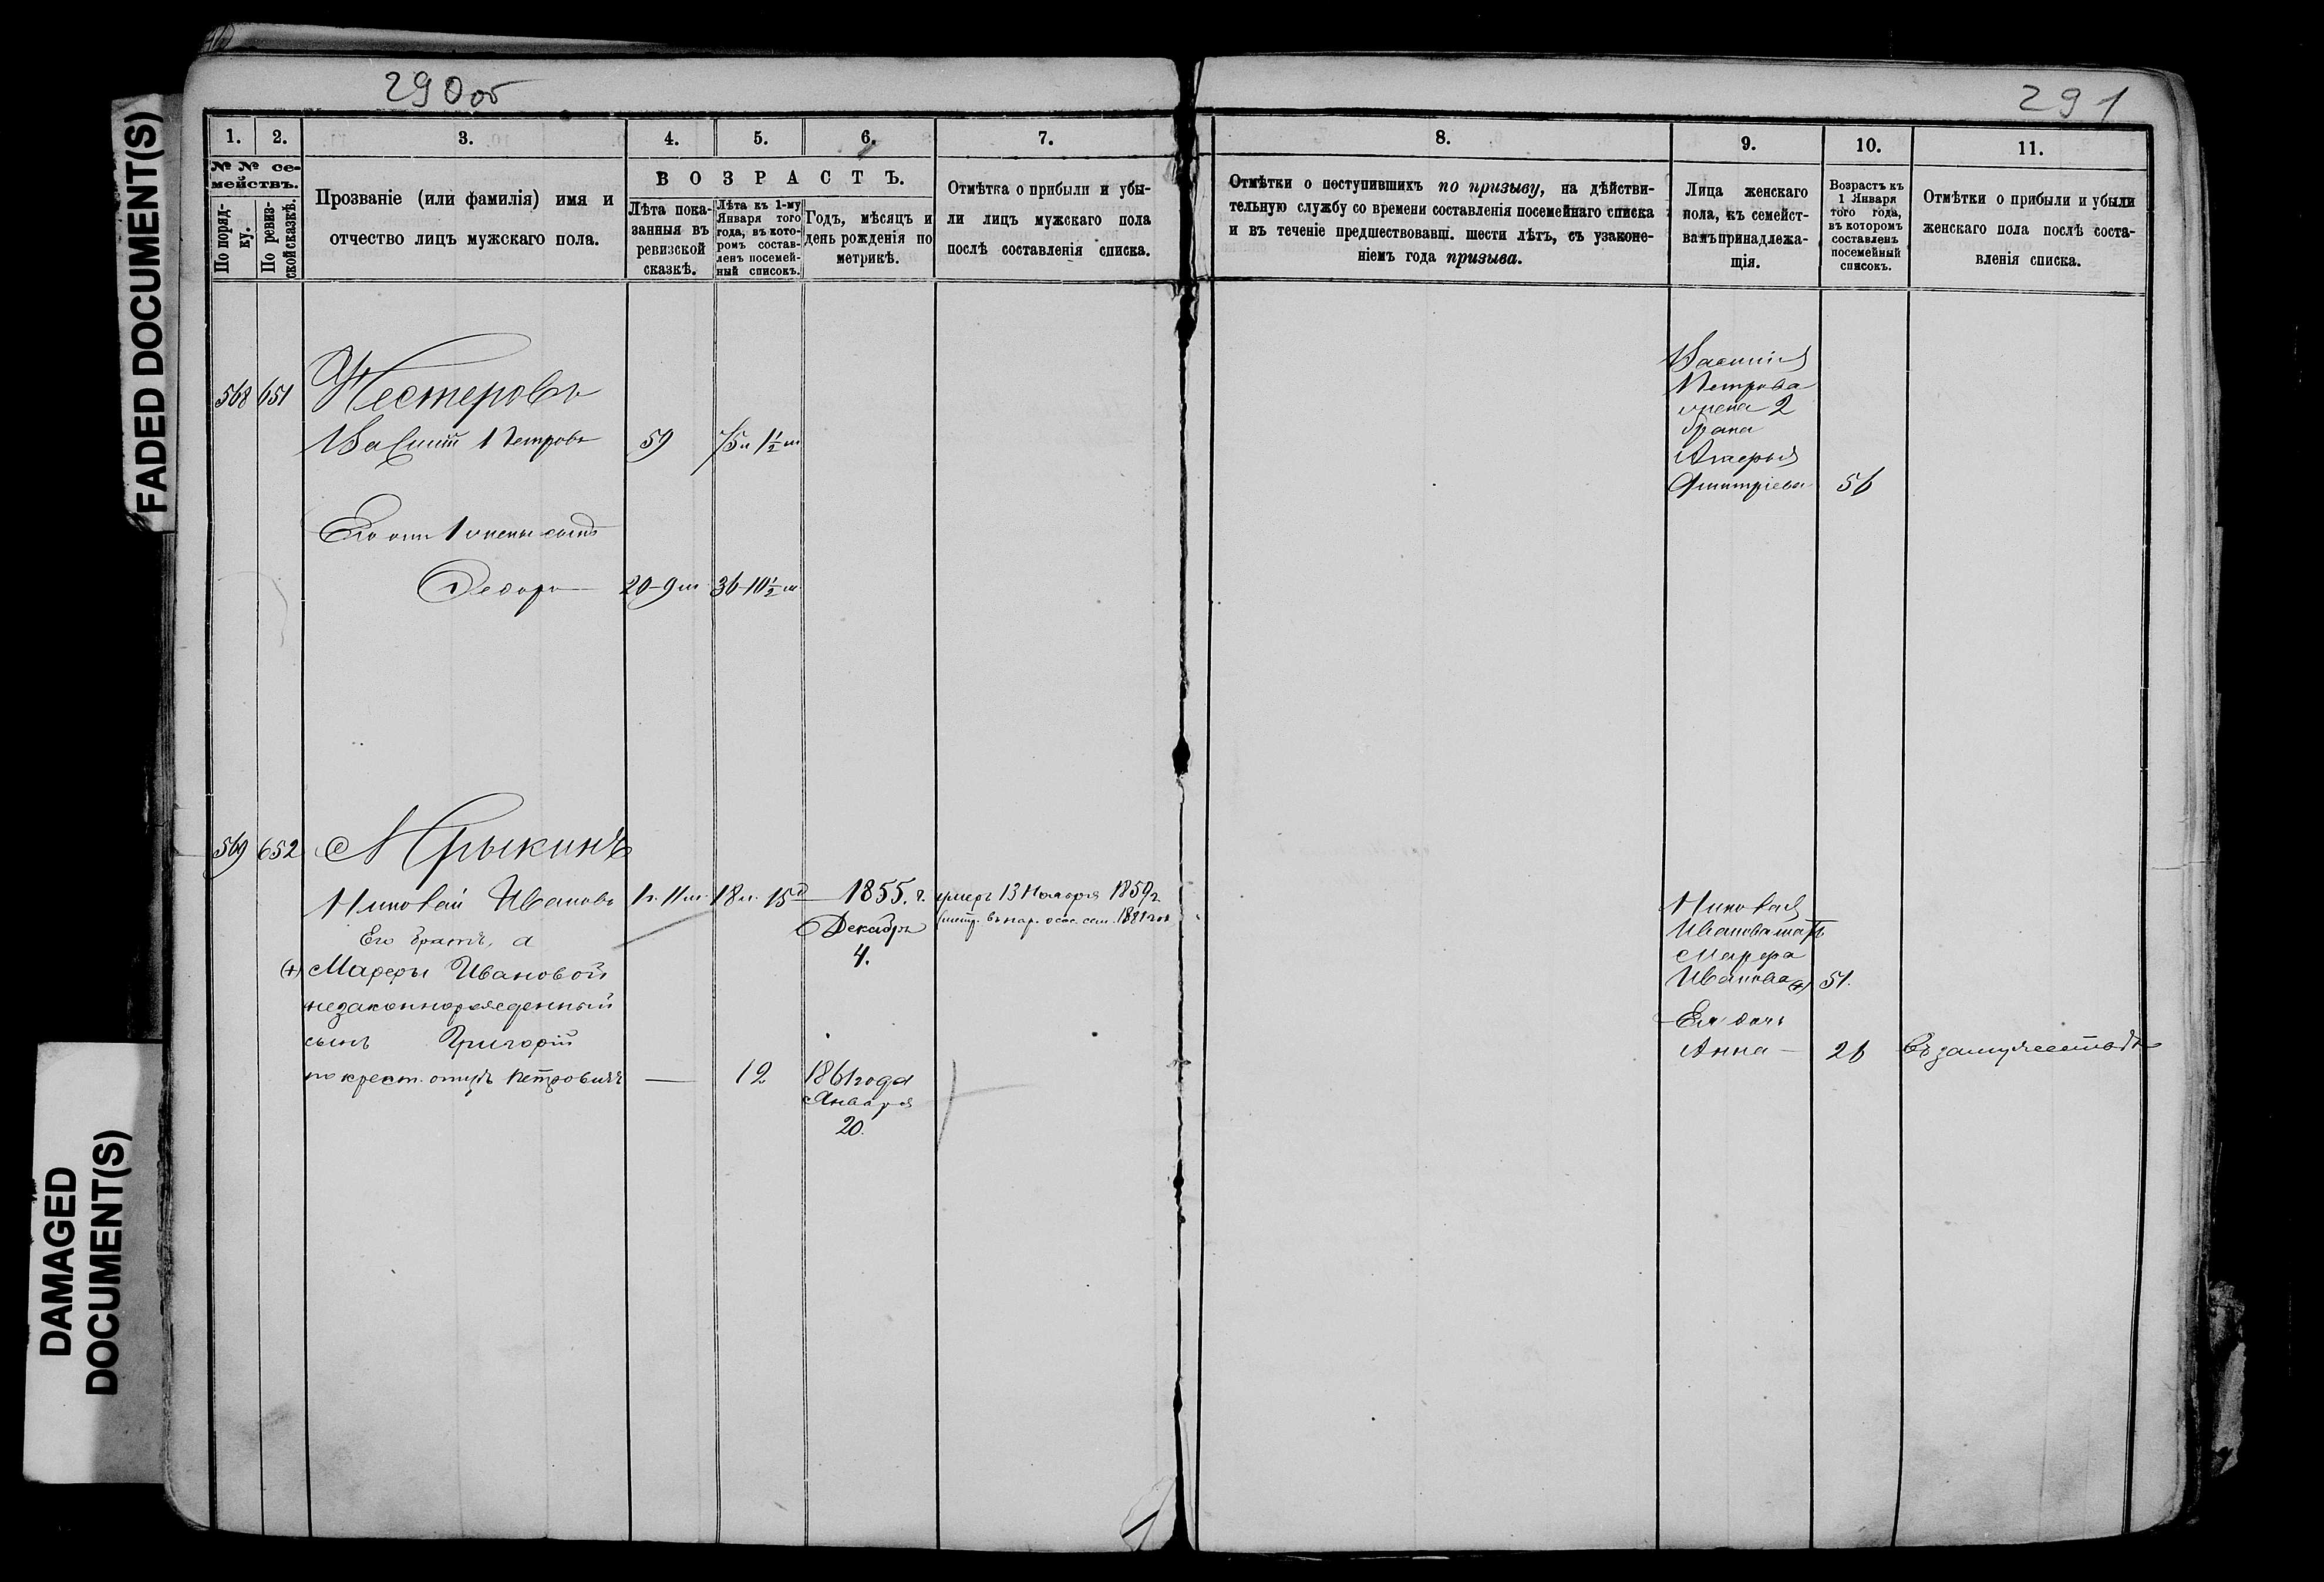 FADED DOCUMENT(S)
DAMAGED
DOCUMENT(S)
290об
291
1.
2.
3.
4.
5.
6.
7.
8.
9.
10.
11.
№ № се-
мействъ.
По поряд-
ку.
По ревиз-
ской сказкѣ.
Прозваніе (или фамилія) имя и
отчество лицъ мужскаго пола.
ВОЗРАСТЪ.
Лѣта пока-
занныя въ
ревизской
сказкѣ.
Лѣта къ 1-му
Января того
года, въ кото-
ромъ состав-
ленъ посемей-
ный списокъ.
Годъ, мѣсяцъ и
день рожденія по
метрикѣ.
Отмѣтка о прибыли и убы-
ли лицъ мужскаго пола
послѣ составленія списка.
Отмѣтки о поступившихъ по призыву, на дѣйстви-
тельную службу со времени составленія посемейнаго списка
и въ теченіе предшествовавш. шести лѣтъ, съ узаконе-
ніемъ года призыва.
Лица женскаго
пола, къ семейст-
вамъ принадлежа-
щія.
Возрастъ къ
1 Января
того года,
въ которомъ
составленъ
посемейный
списокъ.
Отмѣтки о прибыли и убыли
женскаго пола послѣ соста-
вленія списка.
568 651 Нестеровъ
Василій Петровъ 59 75 1½ м
Его отъ 1 жены сынъ
Ѳедоръ 20-9 м 36-10½ м
Василія
Петрова
жена 2
брака
Дмитріева 56
569 652
Николай Ивановъ 1 г. 11 м. 18 л. 15 д 1855 г.
Декабря
4.
умеръ 13 Ноября 1859 г.
Его братъ, а
(+) Марфы Ивановой
незаконнорожденный
сынъ Григорій
по крест. отцу Петровичъ — 12 1861 года
Января
20.
Николая
Иванова мать
Марфа
Иванова (+) 51.
Ея дочь
Анна — 26 въ замужествѣ